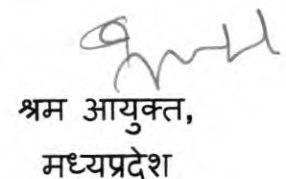 श्रम आयुक्त,
मध्यप्रदेश